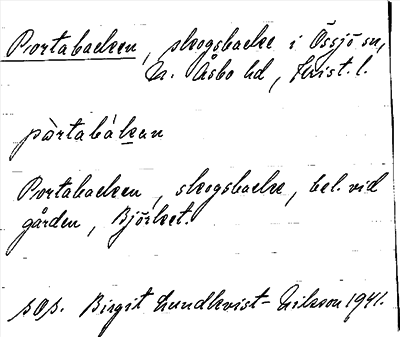 Portabacken, skogsbacke i Össjö sn,
N. Åsbo hd, Krist. l.
pòrtabákan
Portabacken, skogsbacke, bel. vid
gården, Björket.
sOs. Birgit Lundkvist-Nilsson 1941.